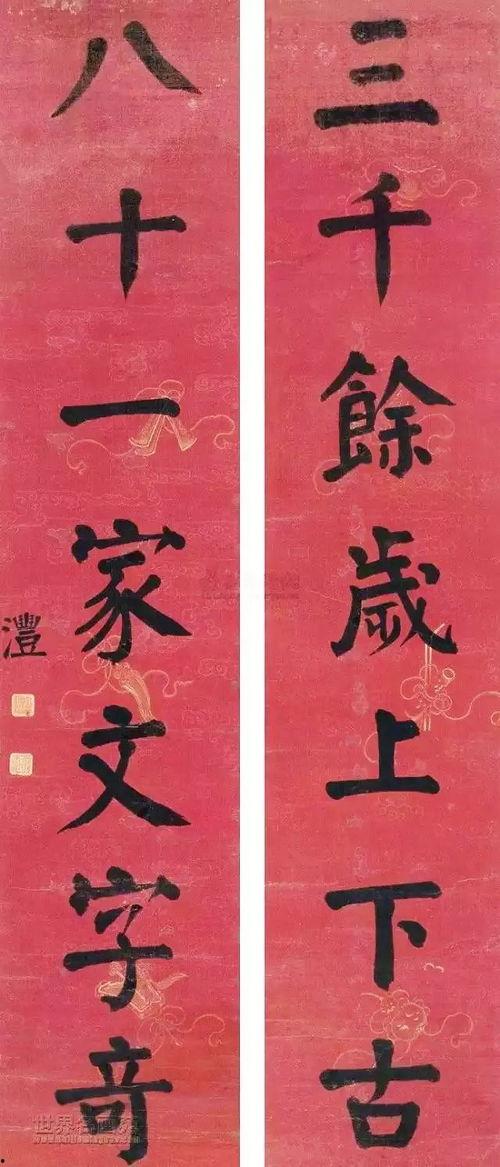 三千餘歲上下古
八十一家文字奇
澧